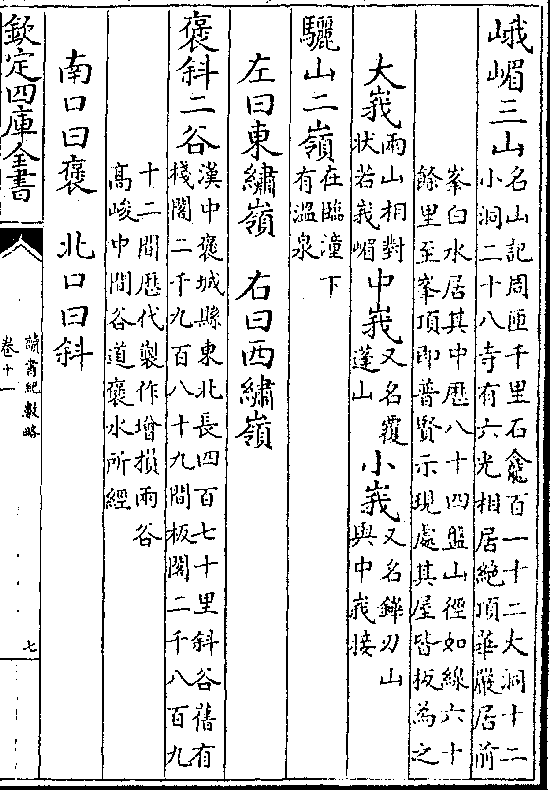 峨嵋三山名山記周匝千里石龕百一十二大洞十二
小洞二十八寺有六光相居絶頂華嚴居前
峯白水居其中歴八十四盤山徑如線六十
餘里至峯頂即普賢示現處其屋皆板為之
大峩兩山相對
状若峩嵋
中峩又名覆
蓬山
小峩又名鏵刃山
與中峩接
驪山二嶺在臨潼下
有溫泉
左曰東繡嶺 右曰西繡嶺
褒斜二谷漢中褒城縣東北長四百七十里斜谷舊有
棧閣二千九百八十九間板閣二千八百九
十二間歴代製作增損兩谷
高峻中間谷道褒水所經
南口曰褒 北口曰斜
欽定四庫全書
讀書紀數略
卷十一
七